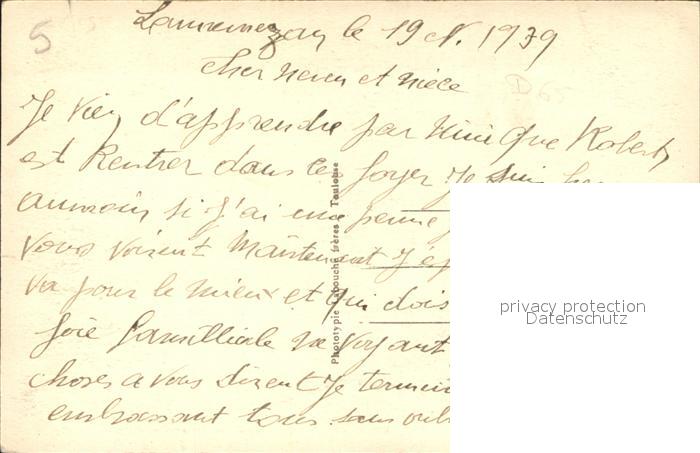 Lannemezan le 19 N. 1939
5
Cher neveu et nièce
Je vien d'apprendre par Ninie que Robert
est Rentrer dans le foyer Je suis
au moin si j'ai une penne
vous voisent Maintenant J'esp
va pour le mieux et qui dois
joie familliale va voyant
choses a vous dirent Je termine
embrassant tous sans oubl
Phototypie Labouche frères Toulouse
privacy protection
Datenschutz